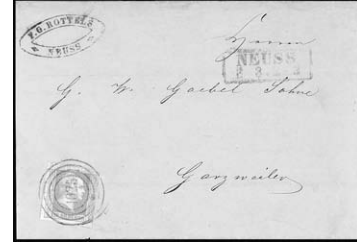 F.G. ROTTELS
NEUSS
Herrn
NEUSS
G. W. Goebel Söhne
Garzweiler